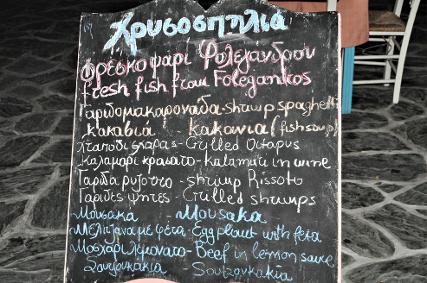 Χρυσοσπηλιά
Φρέσκο ψάρι Φολεγάνδρου
fresh fish from Folegantros
Γαριδομακαρονάδα - shrimp spaghetti
κακαβιά - κακανια (fish soup)
Χταπόδι σχάρας - Grilled Octapus
Καλαμάρι κρασάτο - kalamari in wine
Γαρίδα ρυζότο - shrimp Rissoto
Γαρίδες ψητές - Grilled shrumps
Μουσακά - Mousaka
Μελιτζάνα με φέτα - Eggplant with feta
Μοσχάρι λεμονάτο - Beef in lemon sauce
Σουτζουκάκια - Soutzoukakia